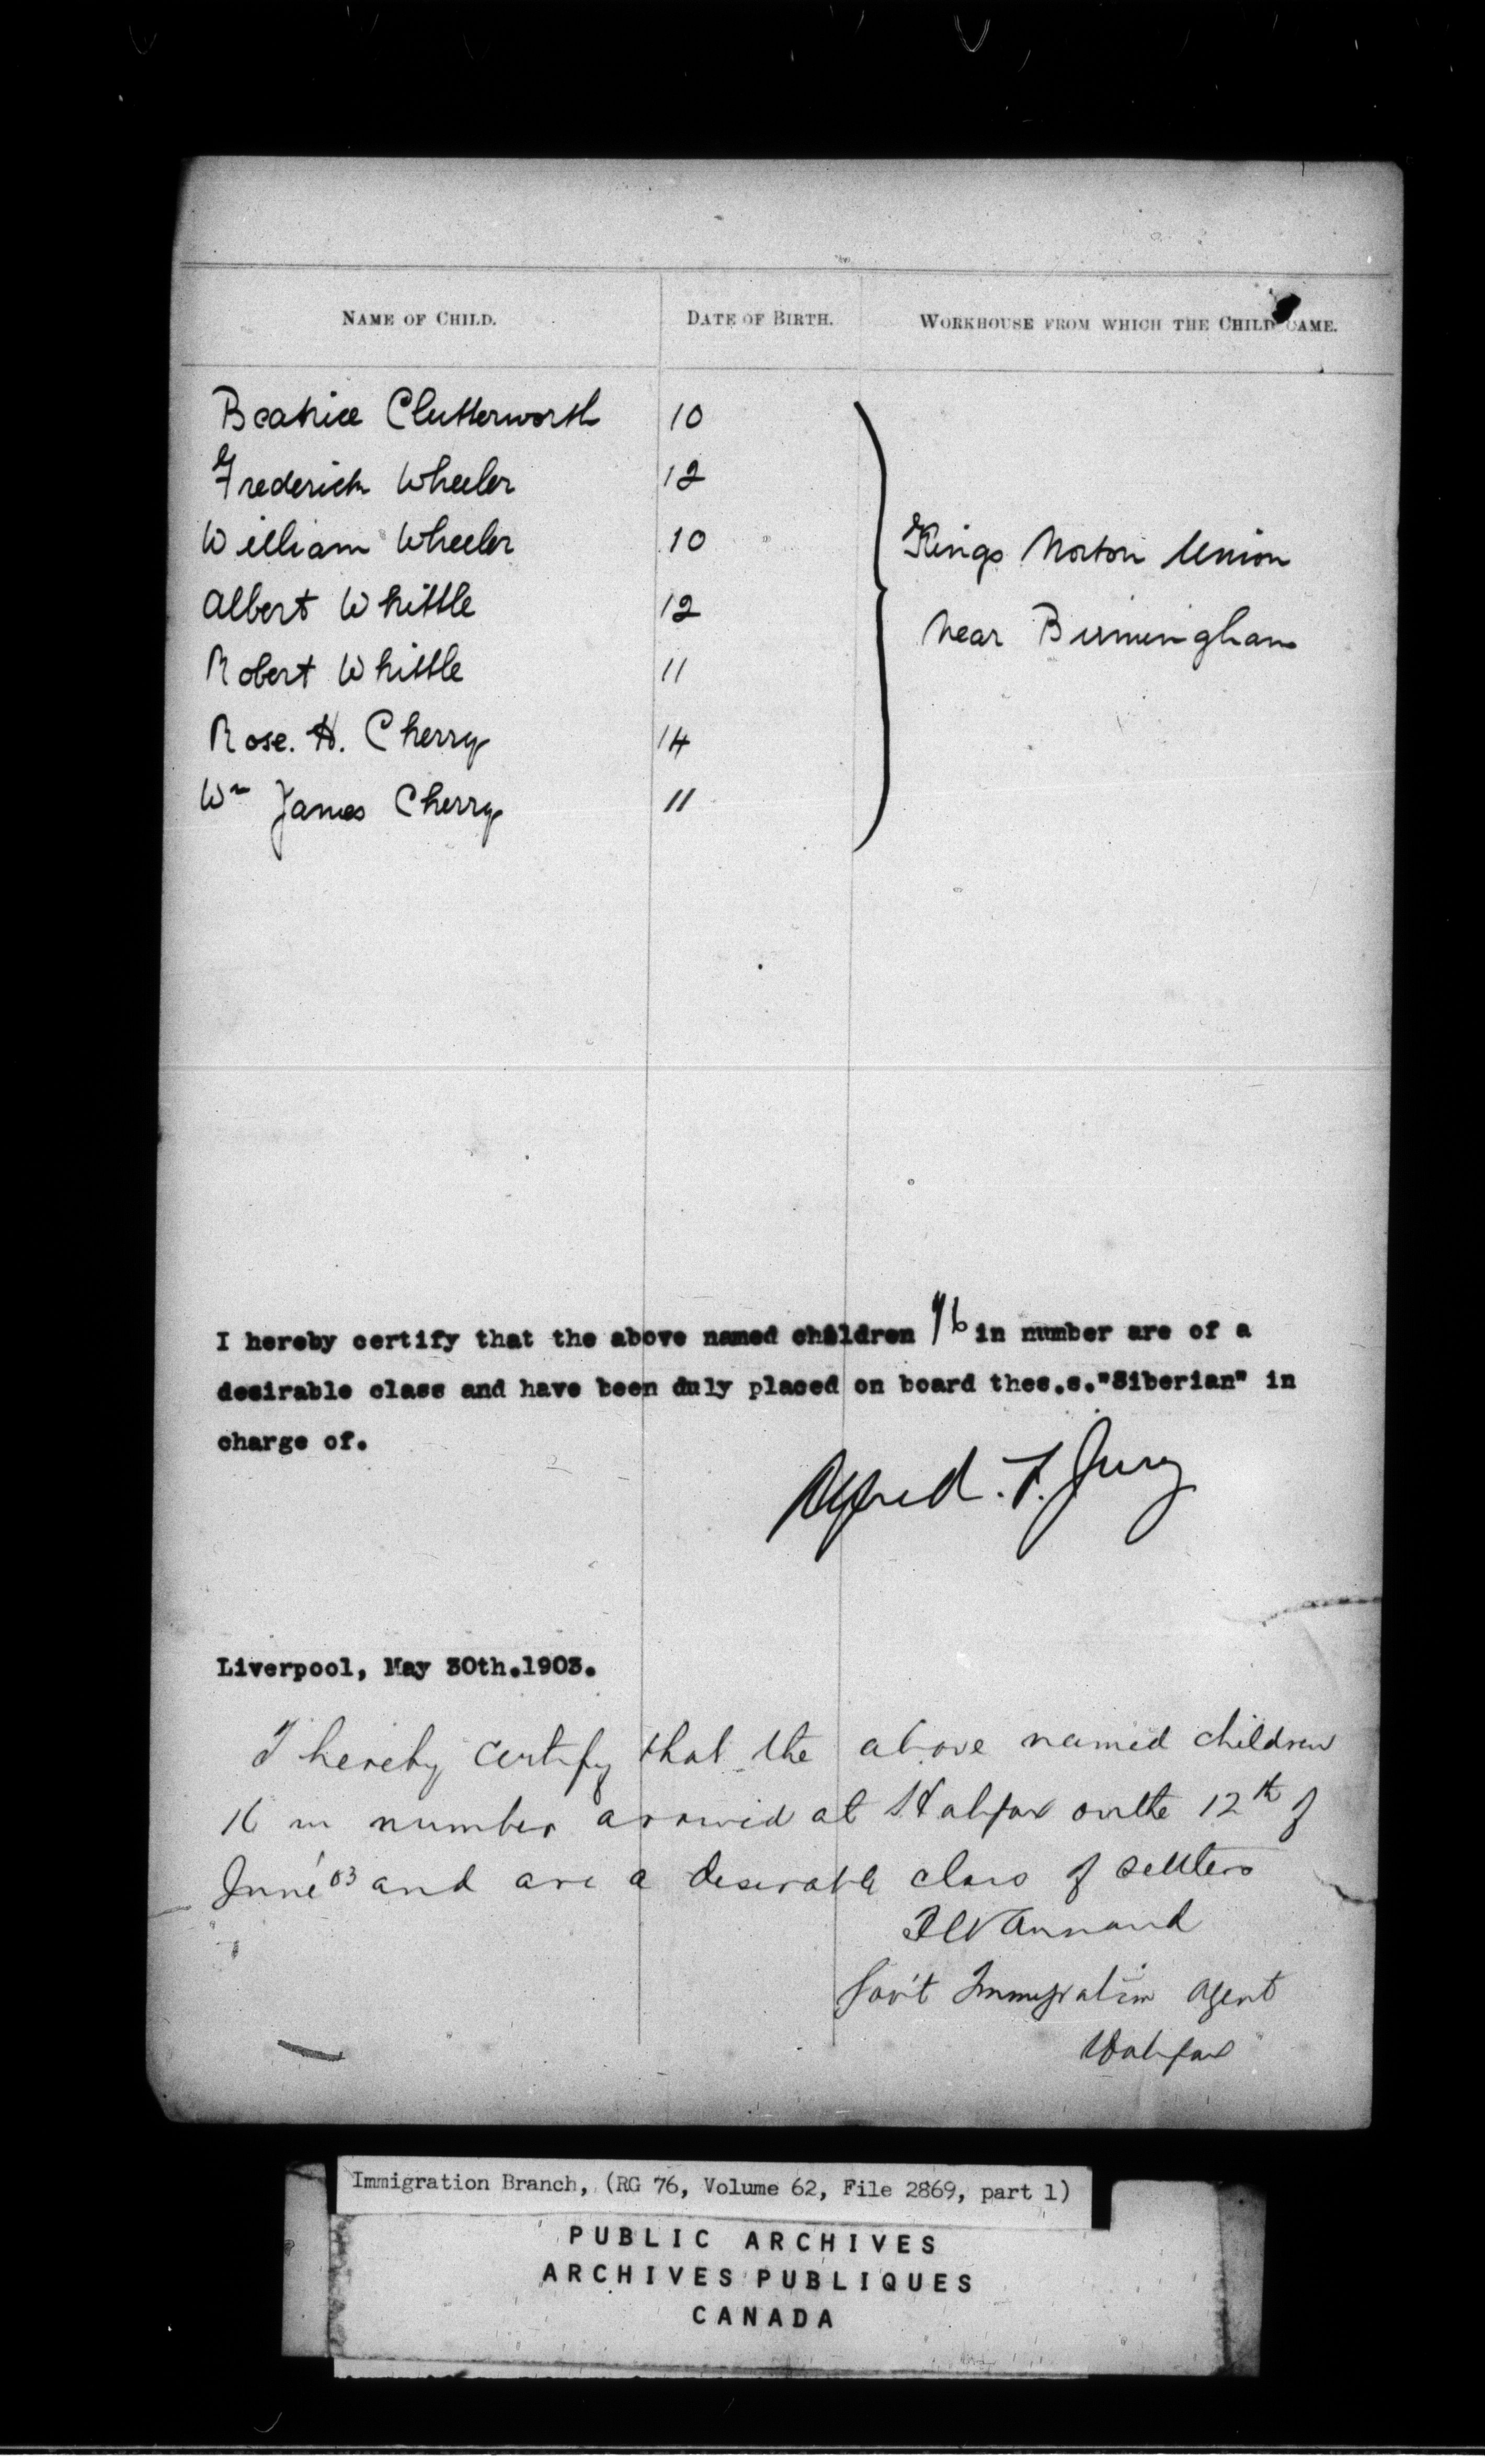 NAME OF CHILD. DATE OF BIRTH. WORKHOUSE FROM WHICH THE CHILD CAME.
Beatrice Clutterworth 10
Frederick Wheeler 12
William Wheeler 10
Kings Norton Union
Albert Whittle 12
near Birmingham
Robert Whittle 11
Rose. H. Cherry 14
Wm James Cherry 11
I hereby certify that the above named children 16 in number are of a
desirable class and have been duly placed on board thes.s."Siberian" in
charge of.
Alfred. F. Jury
Liverpool, May 30th.1903.
I hereby certify that the above named children
16 in number arrived at Halifax on the 12th of
June '03 and are a desirable class of settlers
Annand
Gov't Immigration Agent
Halifax
Immigration Branch, (RG 76, Volume 62, File 2869, part 1)
PUBLIC ARCHIVES
ARCHIVES PUBLIQUES
CANADA